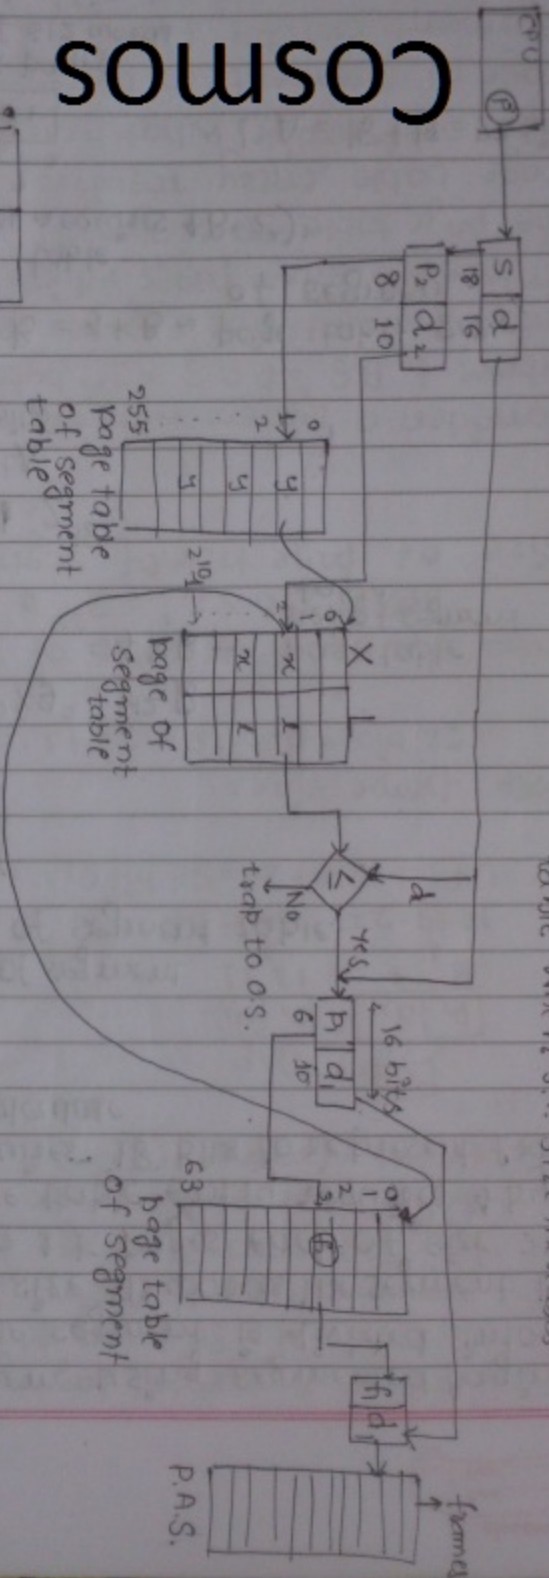 Cosmos
CPU
P
s d
18 16
P2 d2
8 10
0
1
2
255
y
y
y
page table
of segment
table
X L
0
1
2
2^10-1
x l
x l
page of
segment
table
≤
d
yes
No
trap to O.S.
16 bits
P1 d1
6 10
0
1
2
3
63
f1
page table
of segment
f1 d1
frames
P.A.S.